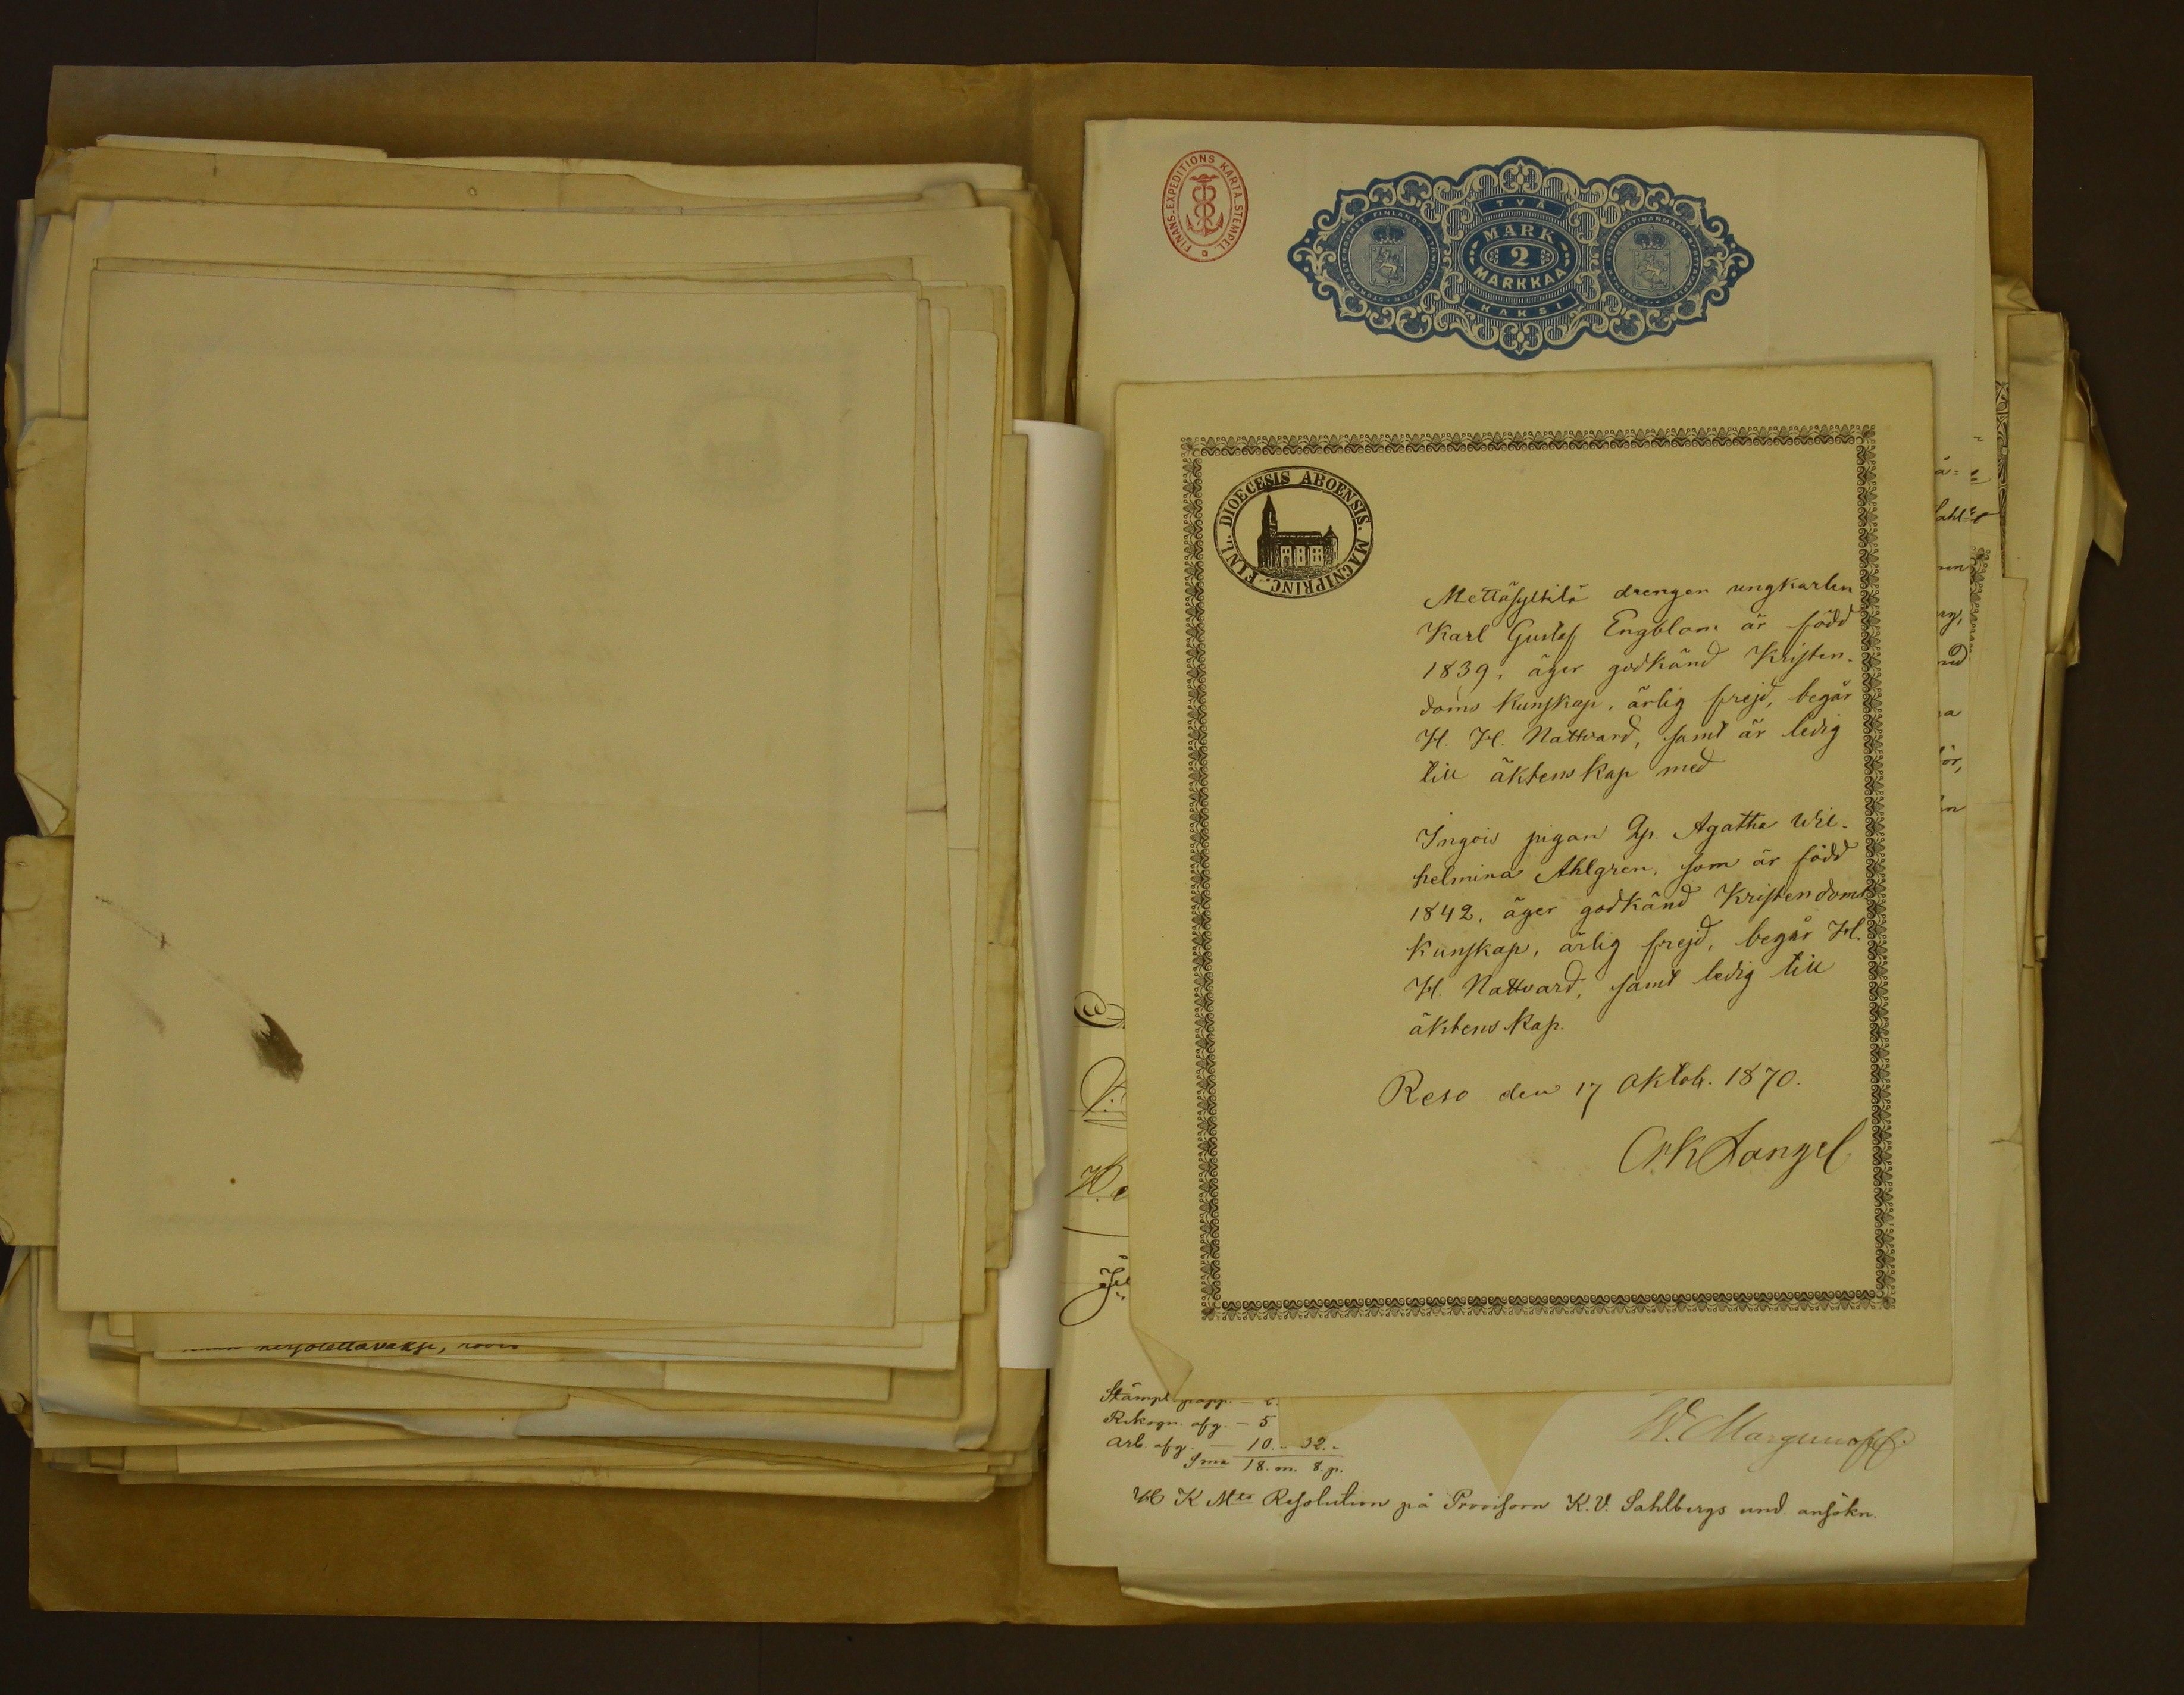 FINANS-EXPEDITIONS KARTA-STEMPEL
TVÅ
MARK
2
MARKKAA
KAKSI
DIOECESIS ABOENSIS. MAGNIPRINC. FINL.
drengen ungkarlen
Karl Gustaf Engblom är född
1839, äger godkänd Kristen-
doms Kunskap, ärlig frejd, begår
H. H. Nattvard, samt är ledig
till äktenskap med
Ingois pigan Agatha Wil-
helmina Ahlgren, som är född
1842, äger godkänd Kristendoms
Kunskap, ärlig frejd, begår H.
H. Nattvard, samt ledig till
äktenskap.
Reso den 17 Oktob. 1870.
Stämpl papp. — 2.
Rekogn. afg. — 5
Arb. afg. — 10. 32.
Sma 18. m. 8. p.
K Mts Resolution på Provisorn K. V. Sahlbergs und. ansökn.